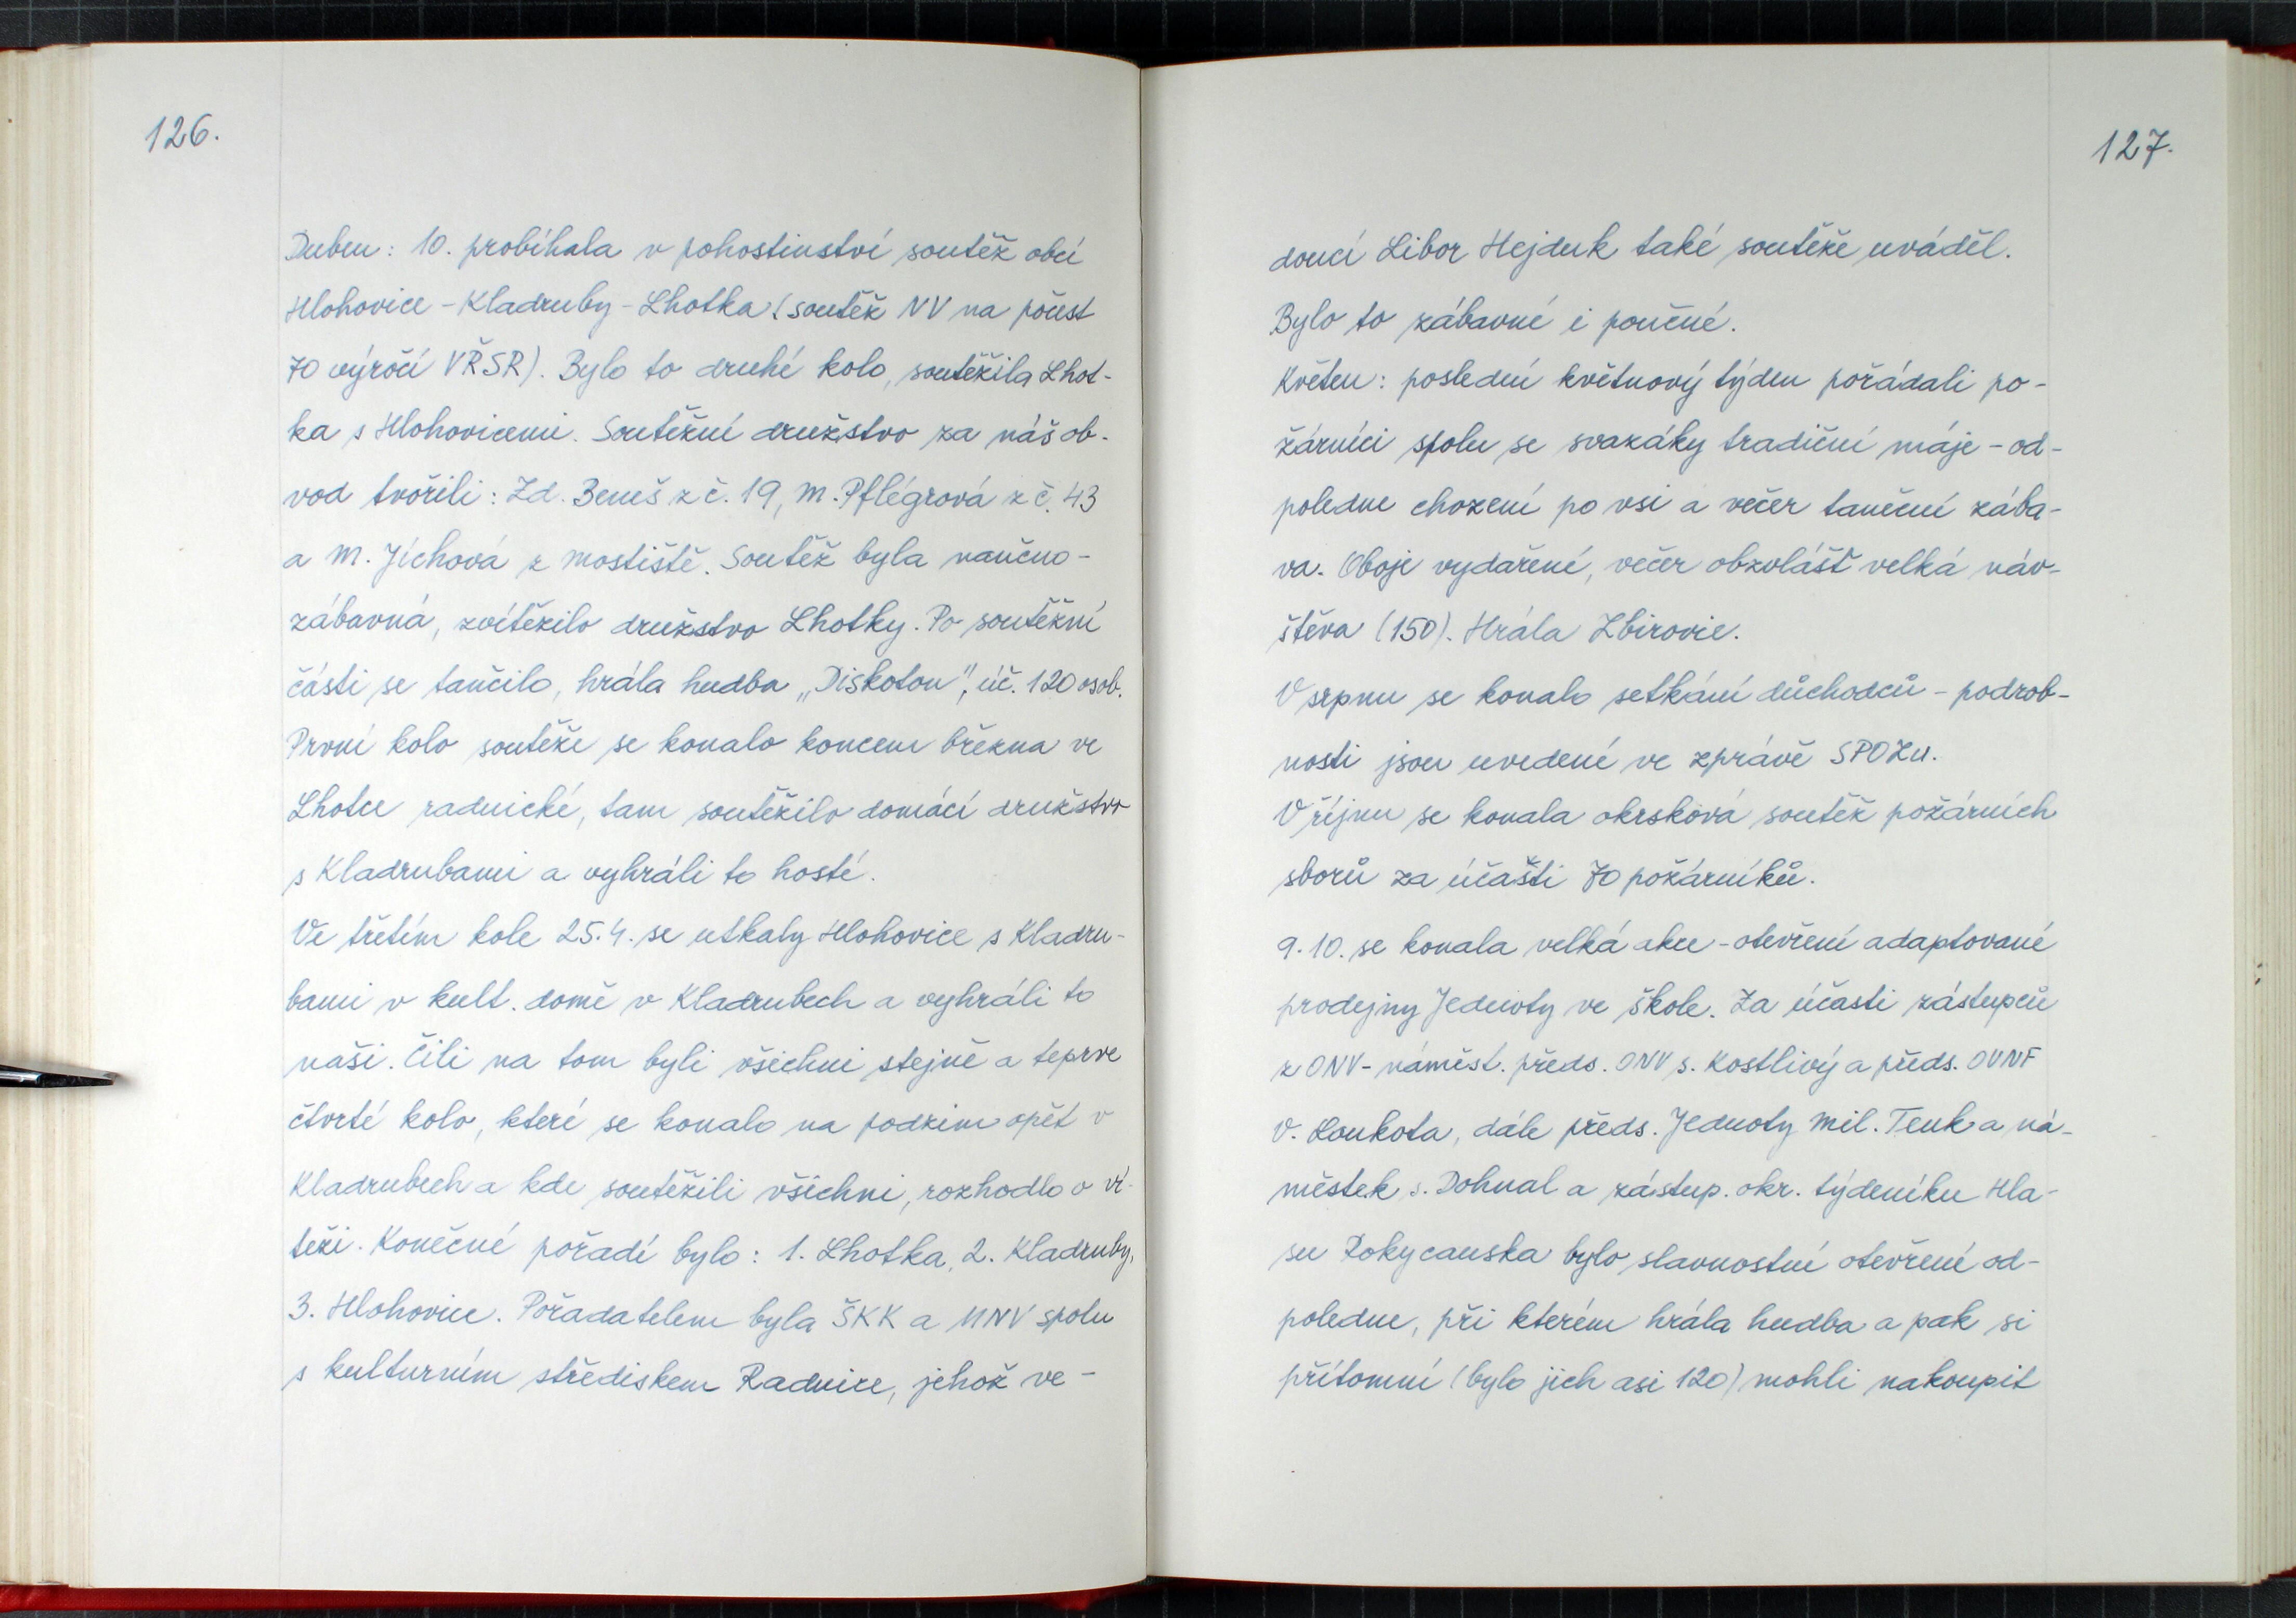 126.
Duben: 10. probíhala v pohostinství soutěž obcí
Hlohovice - Kladruby - Lhotka (soutěž NV na počest
70 výročí VŘSR). Bylo to druhé kolo, soutěžila Lhot-
ka s Hlohovicemi. Soutěžní družstvo za náš ob-
vod tvořili: Zd. Beneš z č. 19, M. Pflégrová z č. 43
a M. Jíchová z Mostiště. Soutěž byla naučno-
zábavná, zvítězilo družstvo Lhotky. Po soutěžní
části se tančilo, hrála hudba „Diskoton", úč. 120 osob.
První kolo soutěže se konalo koncem března ve
Lhotce radnické, tam soutěžilo domácí družstvo
s Kladrubami a vyhráli to hosté.
Ve třetím kole 25.4. se utkaly Hlohovice s Kladru-
bami v kult. domě v Kladrubech a vyhráli to
naši. Čili na tom byli všichni stejně a teprve
čtvrté kolo, které se konalo na podzim opět v
Kladrubech a kde soutěžili všichni, rozhodlo o ví-
tězi. Konečné pořadí bylo: 1. Lhotka, 2. Kladruby,
3. Hlohovice. Pořadatelem byla ŠKK a MNV spolu
s kulturním střediskem Radnice, jehož ve-
127.
doucí Libor Hejduk také soutěže uváděl.
Bylo to zábavné i poučné.
Květen: poslední květnový týden pořádali po-
žárníci spolu se svazáky tradiční máje - od-
poledne chození po vsi a večer taneční zába-
va. Oboje vydařené, večer obzvlášť velká náv-
štěva (150). Hrála Zbirovie.
V srpnu se konalo setkání důchodců - podrob-
nosti jsou uvedené ve zprávě SPOZu.
V říjnu se konala okrsková soutěž požárních
sborů za účašti 70 požárníků.
9.10. se konala velká akce - otevření adaptované
prodejny Jednoty ve škole. Za účasti zástupců
z ONV - náměst. předs. ONV s. Kostlivý a předs. OVNF
V. Loukota, dále předs. Jednoty Mil. Tenk a ná-
městek s. Dohnal a zástup. okr. týdeníku Hla-
su Rokycanska bylo slavnostní otevření od-
poledne, při kterém hrála hudba a pak si
přítomní (bylo jich asi 120) mohli nakoupit